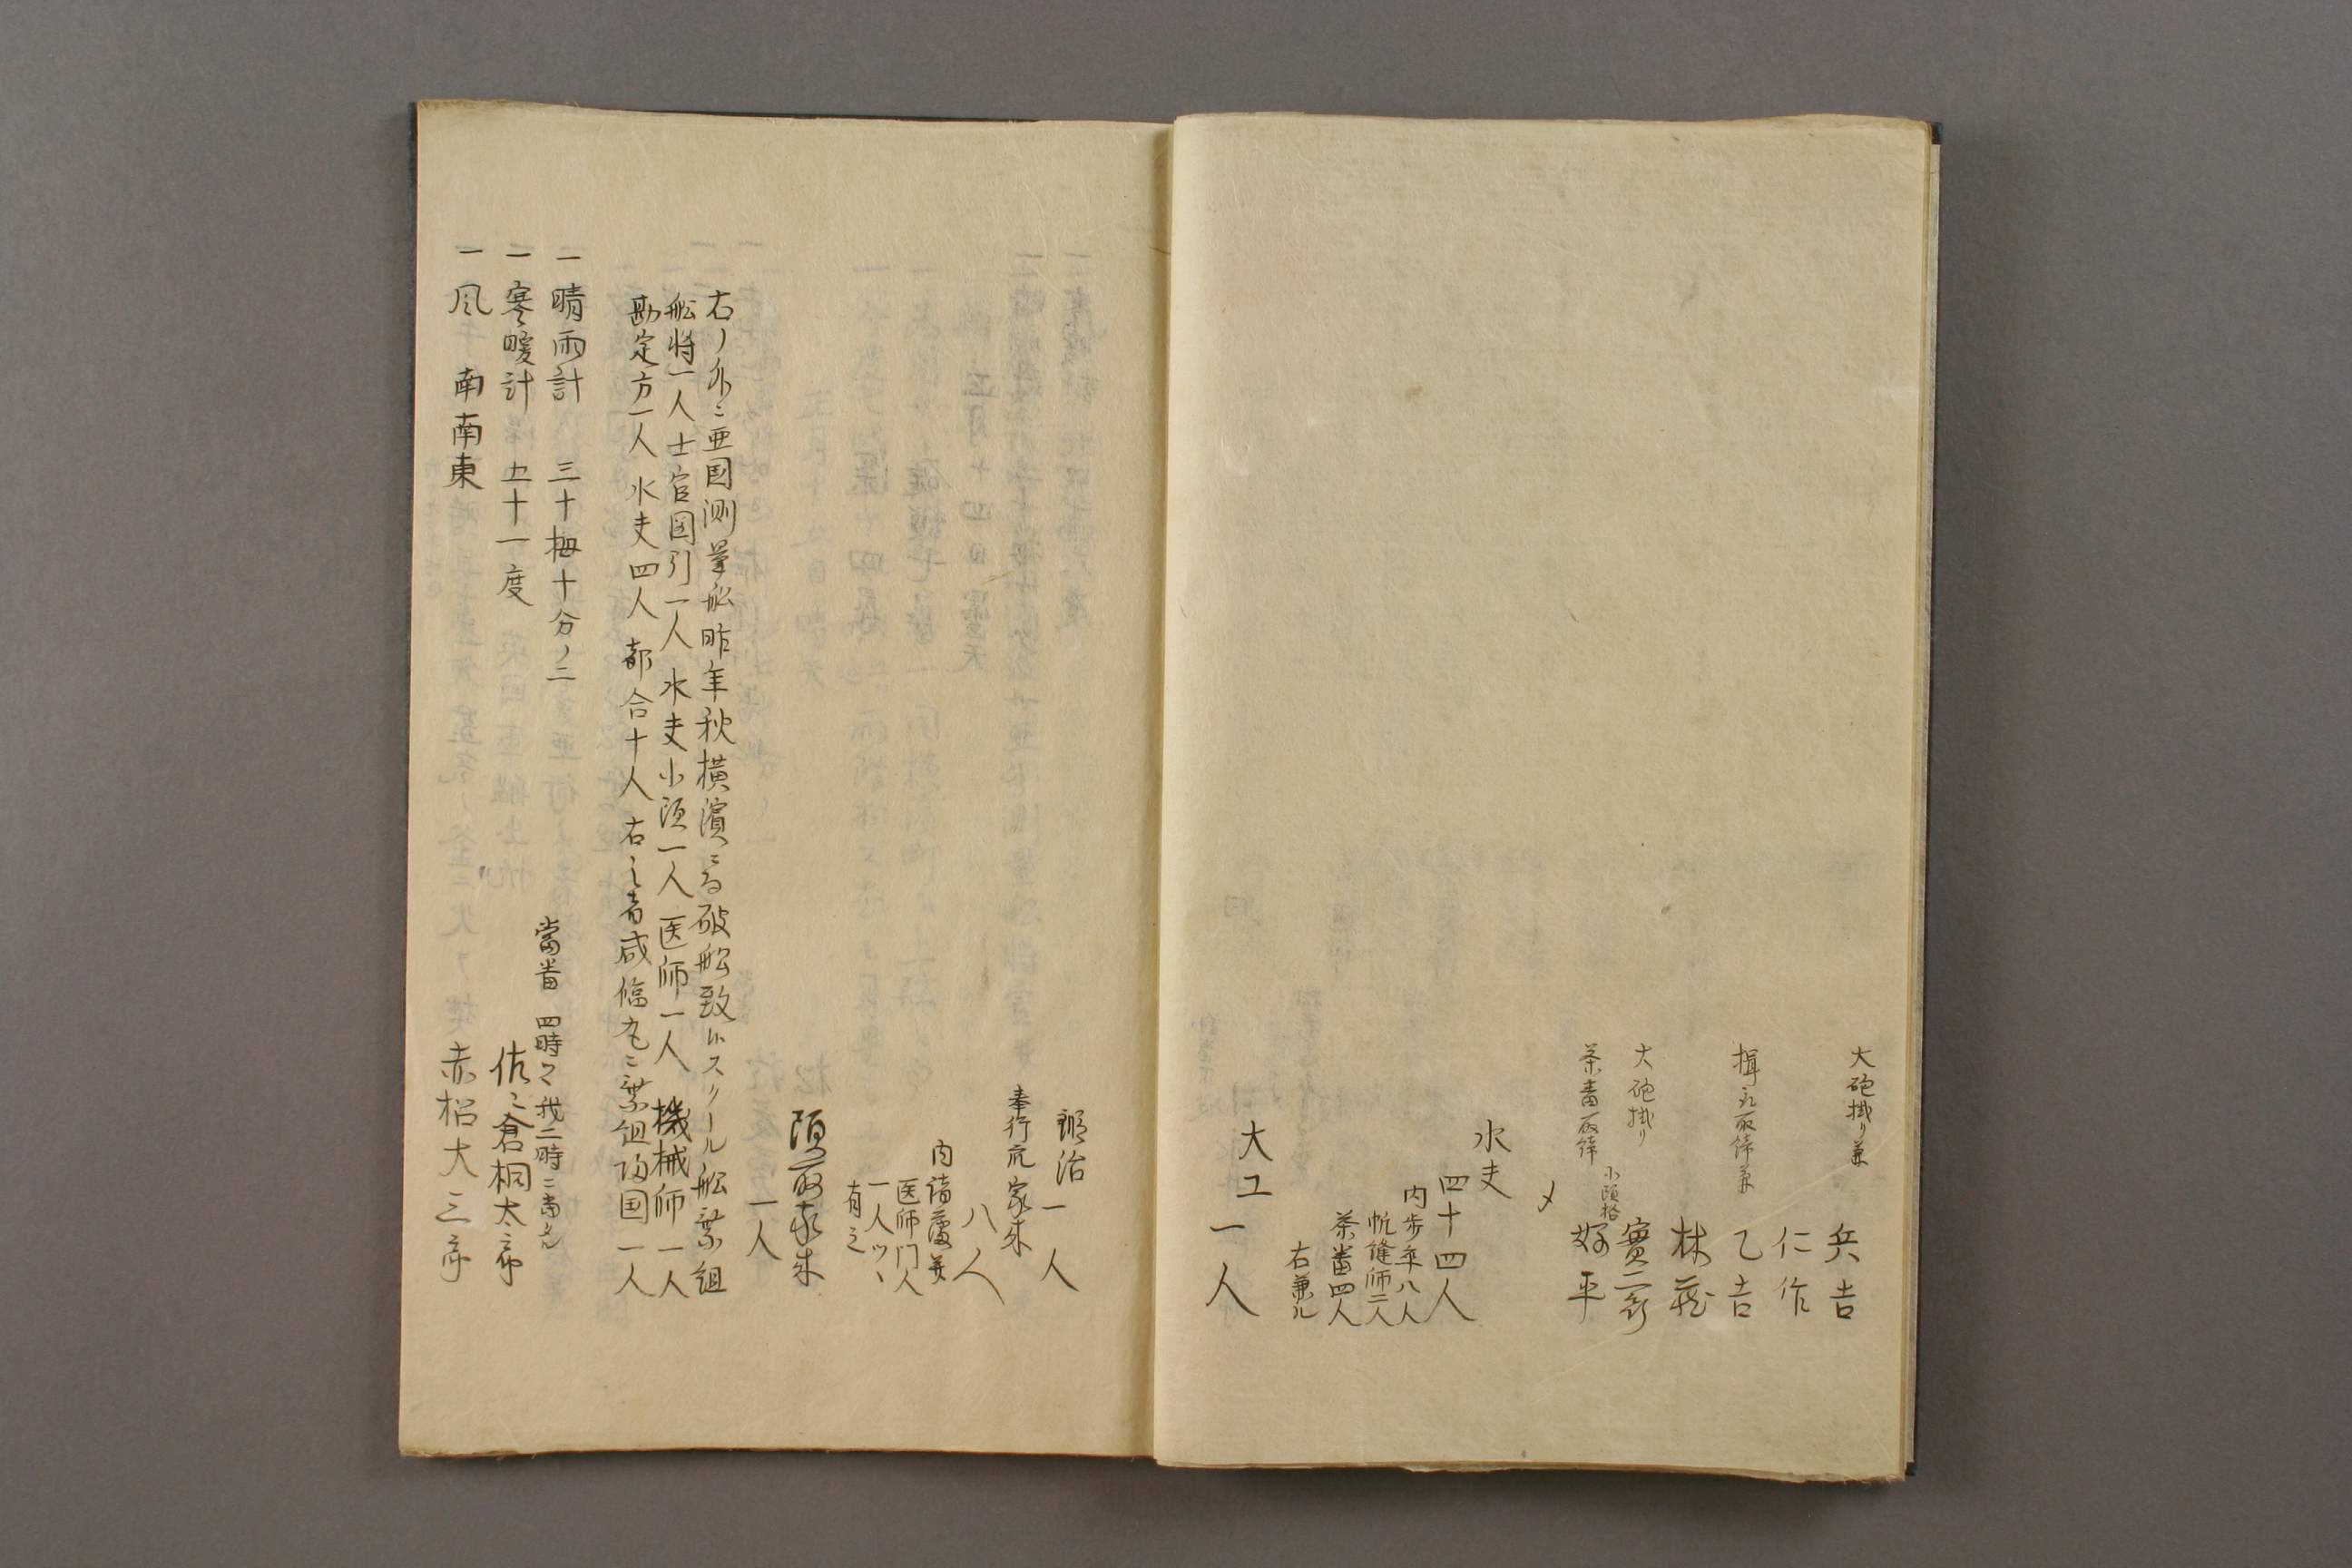 大砲掛り兼
兵吉
仁作
揖取取締兼
乙吉
林蔵
大砲掛り
實二郎
茶番取締
小頭格
好平
〆
水夫
四十四人
内歩卒八人
帆縫師二人
茶番四人
右兼ル
大工
一人
鍛冶一人
奉行衆家来
八人
内
医師門人
一人ツヽ
有之
頭取家来
一人
右ノ外ニ亜国測量舩昨年秋横濱ニ而破舩致候スクール舩乗組
舩将一人士官国引一人水夫小頭一人医師一人機械師一人
勘定方一人水夫四人都合十人右之者咸臨丸ニ乗組帰国一人
一晴雨計 三十拇十分ノ二
當番 四時 我二時ニ当ル
一寒暖計 五十一度
佐々倉桐太郎
一風 南南東
赤松大三郎